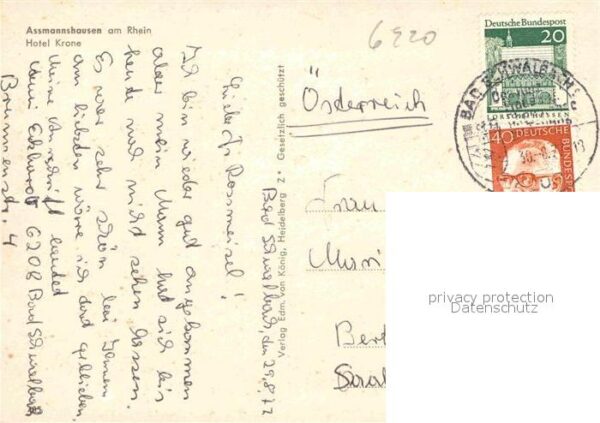 Assmannshausen am Rhein
Hotel Krone
6220
Deutsche Bundespost
20
LORSCH/HESSEN
40
DEUTSCHE BUNDESP
BAD SCHWALBACH
Bad Schwalbach, den 29.8.72
Liebe Fr. Rossmeisel!
Ich bin wieder gut angekommen
aber mein Mann hat sich bis
heute noch nicht sehen lassen.
Es war sehr schön bei Ihnen
am liebsten wäre ich dort geblieben.
Meine Anschrift lautet
6208 Bad Schwalbach
Brunnenstr. 4
Verlag Edm. von König, Heidelberg Z* Gesetzlich geschützt
Österreich
Frau
privacy protection
Datenschutz